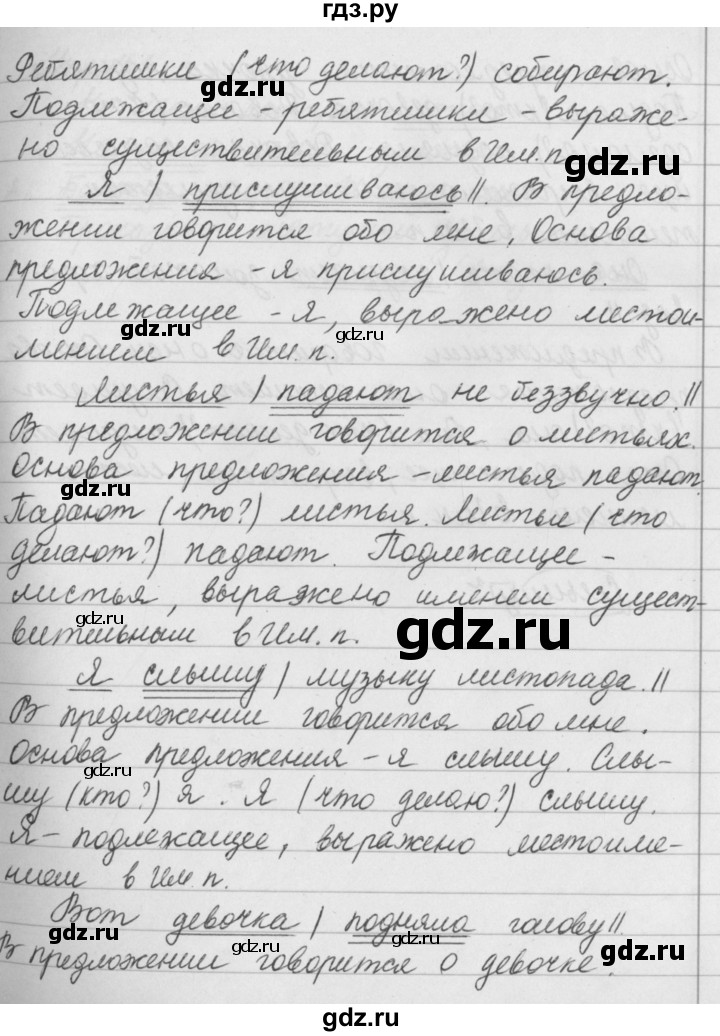 гдз.ру
Ребятишки (что делают?) собирают.
Подлежащее - ребятишки - выраже-
но существительным в Им. п.
Я | прислушиваюсь ||. В предло-
жении говорится обо мне. Основа
предложения - я прислушиваюсь.
Подлежащее - я, выражено местои-
мением в Им. п.
Листья | падают не беззвучно. ||
В предложении говорится о листьях.
Основа предложения - листья падают.
Падают (что?) листья. Листья (что
делают?) падают. Подлежащее -
листья, выражено именем сущест-
вительным в Им. п.
Я слышу | музыку листопада. ||
В предложении говорится обо мне.
Основа предложения - я слышу. Слы-
шу (кто?) я. Я (что делаю?) слышу.
Я - подлежащее, выражено местоиме-
нием в Им. п.
Вот девочка | подняла голову ||
В предложении говорится о девочке.
gdz.ru